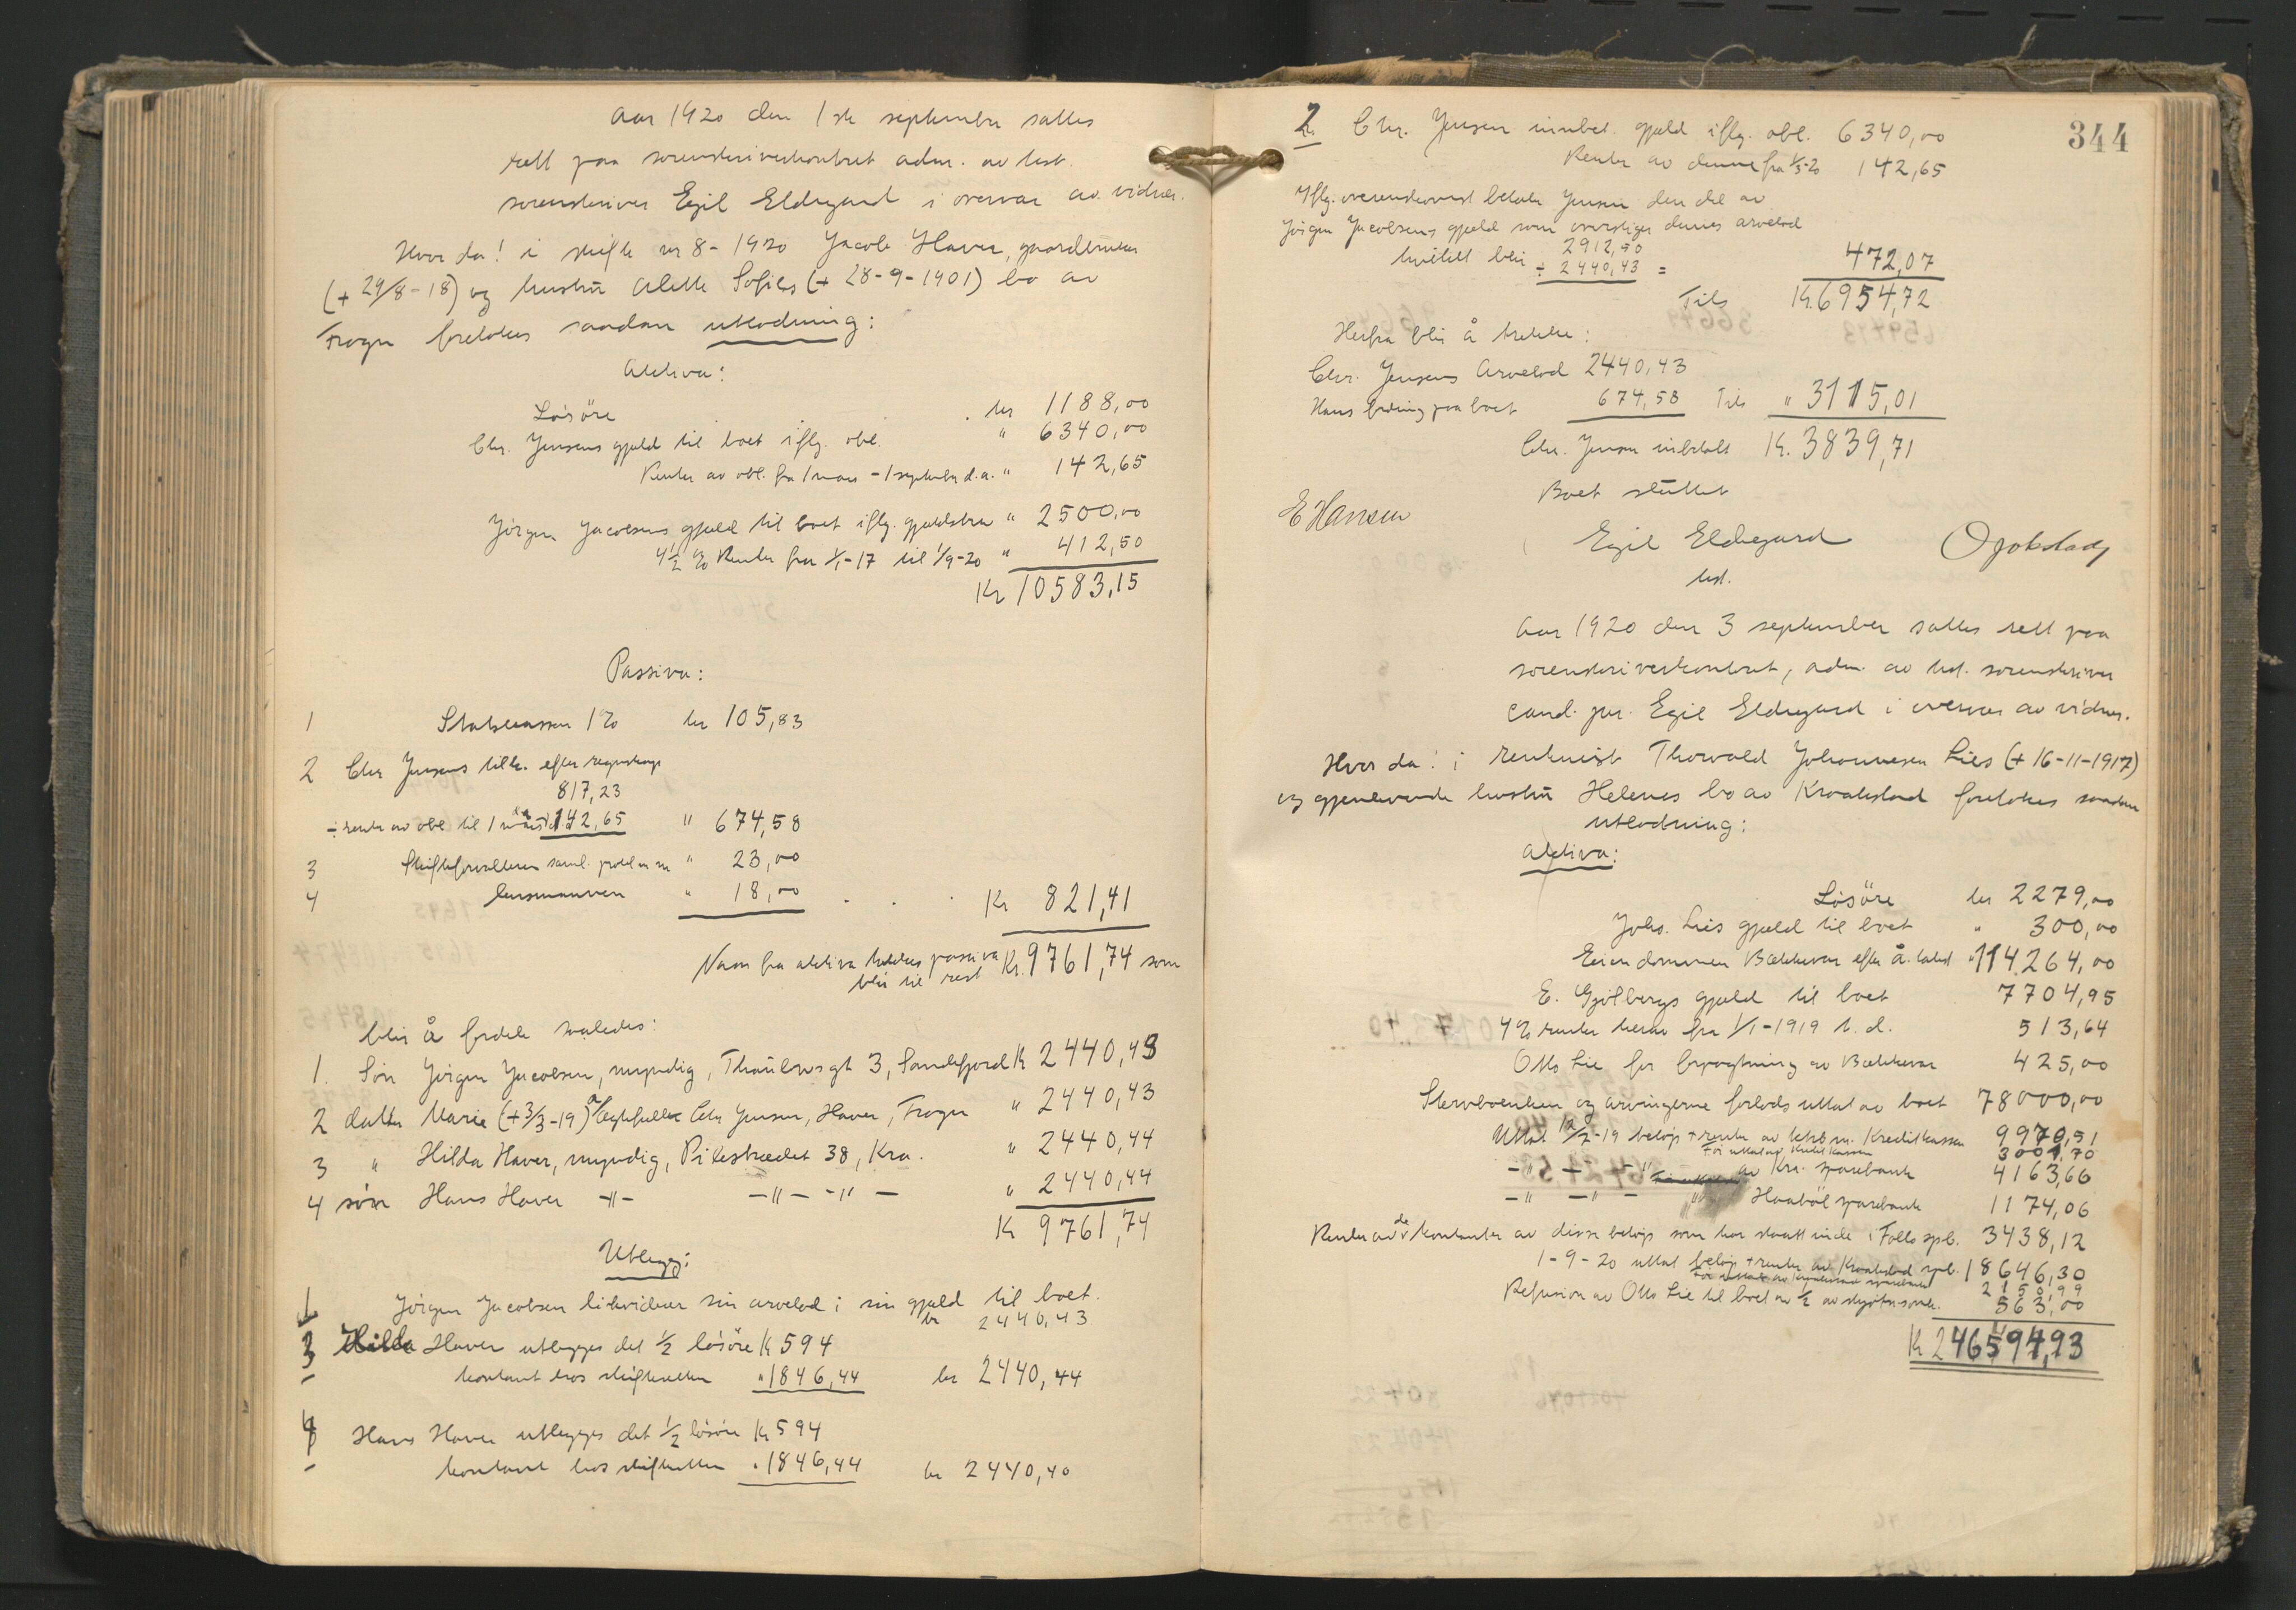 Aar 1920 den 1ste september sattes
rett paa sorenskriverkontoret adm. av kst.
sorenskriver Egil Eldegard i overvær av vidner.
Hvor da! i skifte nr 8-1920 Jacob Haver, gaardbruker
(+ 29/8-18) og hustru Alette Sofies (+ 28-9-1901) bo av
Frogn foretokes saadan utlodning:
Aktiva:
Lösöre kr 1188,00
Chr. Jensens gjæld til boet iflg. obl. " 6340,00
Renter av obl. fra 1 mars - 1 september d.a. " 142,65
Jörgen Jacobsens gjæld til boet iflg. gjældsbrev " 2500,00
4½ % Renter fra 1/1-17 til 1/9-20 " 412,50
Kr 10583,15
Passiva:
1 Statskassen 1% kr 105,83
2 Chr Jensens tilk. efter regnskap
817,23
÷ rente av obl til 1 mars 142,65 " 674,58
3 Skifteforvalteren saml. " 23,00
4 lensmannen " 18,00 . . . Kr 821,41
Naar fra aktiva trekkes passiva Kr. 9761,74 som
blir til rest
blir å fordele saaledes:
1. Sön Jörgen Jacobsen, myndig, Thaulowsgt 3, Sandefjord K 2440,43
2 datter Marie (+ 3/3-19) egtefælle Chr Jensen, Haver, Frogn " 2440,43
3 " Hilda Haver, myndig, Pilestrædet 38, Kra. " 2440,44
4 sön Hans Haver -"- -"- -"- " 2440,44
Kr 9761,74
Utlegg:
1 Jörgen Jacobsen likviderer sin arvelod i sin gjæld til boet.
kr 2440,43
3 Hilda Haver utlegges det ½ lösöre K 594
kontant hos skifteretten " 1846,44 kr 2440,44
4 Hans Haver utlegges det ½ lösöre Kr 594
kontant hos skifteretten " 1846,44 kr 2440,40
344
2. Chr. Jensen innbet. gjæld iflg. obl. 6340,00
Renter av denne fra 1/3-20 142,65
Iflg. overenskomst betaler Jensen den del av
Jörgen Jacobsens gjæld som overstiger dennes arvelod
hvilket blir 2912,50
÷ 2440,43 = 472,07
Tils Kr. 6954,72
Herfra blir å trekke:
Chr. Jensens Arvelod 2440,43
Hans fordring paa boet 674,58 Tils " 3115,01
Chr. Jensen innbetalt K. 3839,71
Boet sluttet
E Hansen
Egil Eldegard
kst.
Opokstad
Aar 1920 den 3 september sattes rett paa
sorenskriverkontoret, adm. av kst. sorenskriver
cand. jur. Egil Eldegard i overvær av vidner.
Hvor da! i Thorvald Johannesen Lies (+ 16-11-1917)
og gjenlevende hustru Helenes bo av Kraakstad foretokes saadan
utlodning:
Aktiva:
Lösöre kr 2279,00
Johs. Lies gjæld til boet " 300,00
Eiendommen Bækkevar efter å. takst " 114264,00
E. Gjölbergs gjæld til boet 7704,95
4% renter herav fra 1/1-1919 t. d. 513,64
Otto Lie for forpagtning av Bækkevar 425,00
Stervboenken og arvingerne forlods uttat av boet 78000,00
Uttat 12/7-19 belöp + renter av Kreditkassen 9970,51
För uttat av Kreditkassen 3001,70
-"- -"- -"- av Kra. sparebank 4163,66
-"- -"- - "" Haaböl sparebank 1174,06
Renter av de kontanter av disse belöp som har staatt inde i Follo spb. 3438,12
1-9-20 uttat belöp + renter av Kraakstad spb. 18646,30
För uttat av Kraakstad sparebank 2150,99
Refusion av Otto Lie til boet av ½ av 563,00
Kr 246594,93